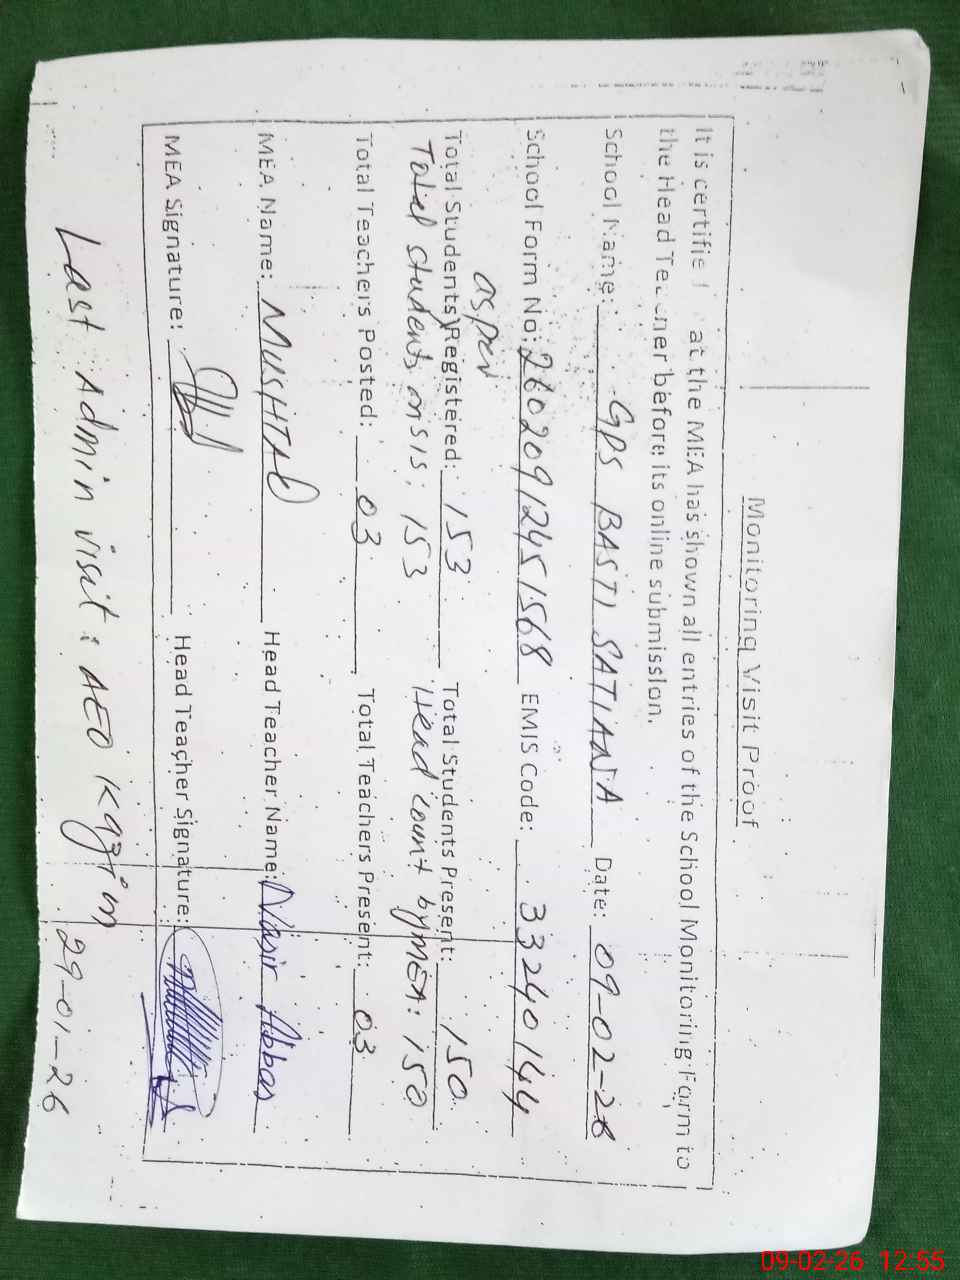 Monitoring Visit Proof
It is certifie at the MEA has shown all entries of the School Monitoring Form to
the Head Teacher before its online submission.
School Name: GPS BASTI SATIANA Date: 09-02-26
School Form No: 26020912451568 EMIS Code: 33240144
as per
Total Students Registered: 153 Total Students Present: 150
Total students on sis: 153 Head count by MEA: 150
Total Teachers Posted: 03 Total Teachers Present: 03
MEA Name: MUSHTAQ Head Teacher Name: Nasir Abbas
MEA Signature: Head Teacher Signature:
Last Admin visit: AEO Kazim 29-01-26
09-02-26 12:55